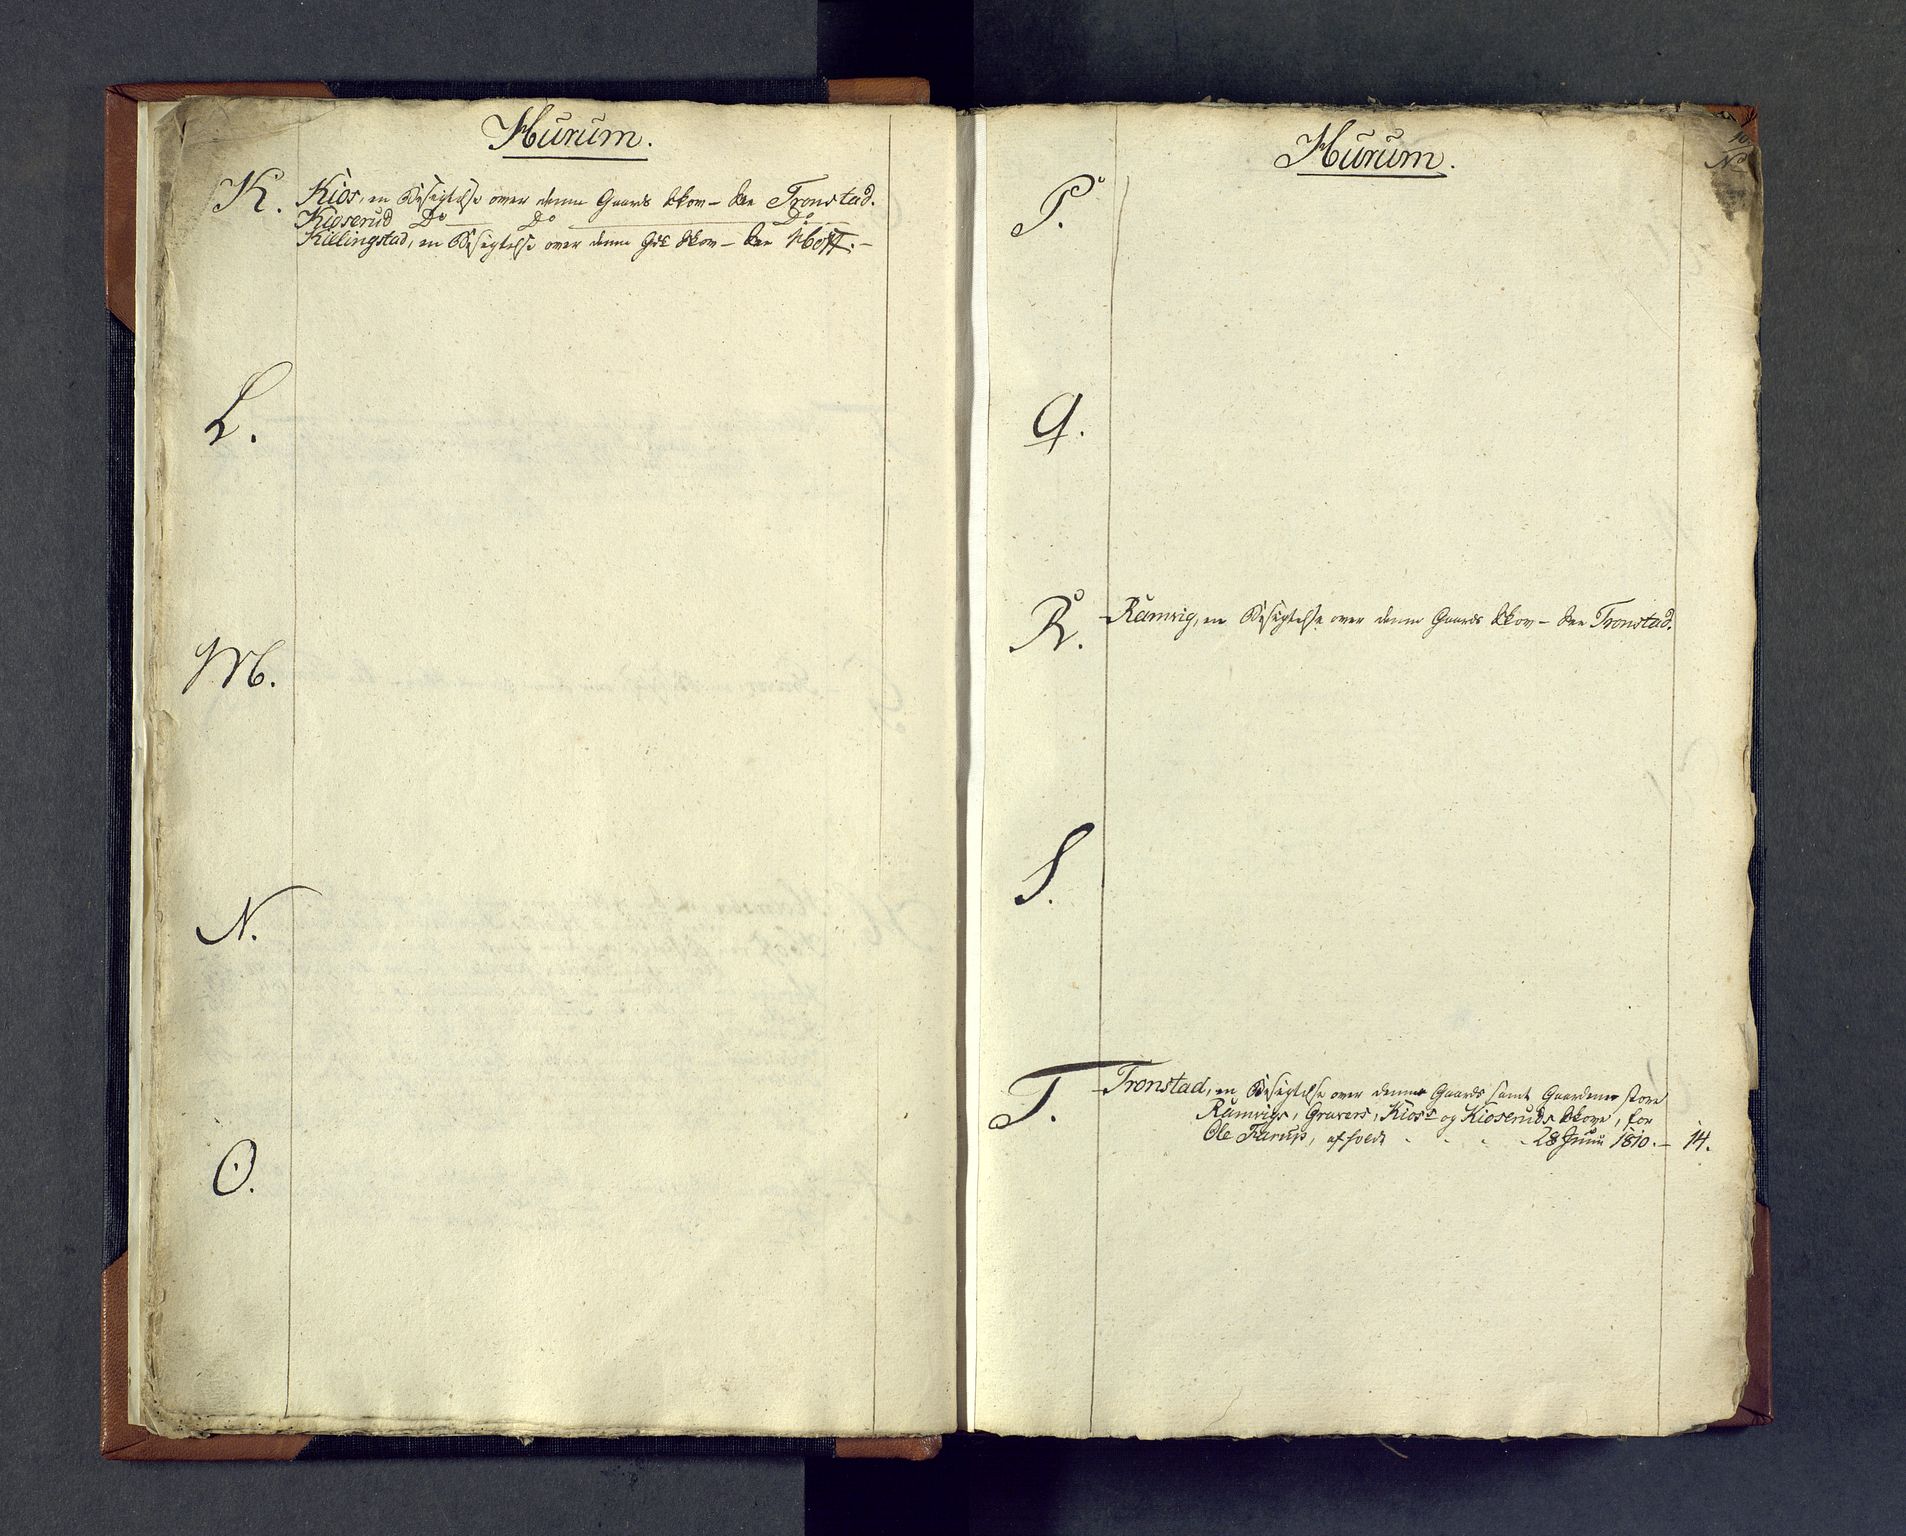 Hurum.
K. Kios, en Besigtelse over denne Gaards Skov – See Tronstad.
Kioserud Do Do Do
Killingstad, en Besigtelse over denne Gds Skov – See Hoff. –
L.
M.
N.
O.
10.
No
Hurum.
P.
Q.
R. Ramvig, en Besigtelse over denne Gaards Skov – See Tronstad.
S.
T. Tronstad, en Besigtelse over denne Gaards samt Gaardene store
Ramvigs, Gravers, Kioss og Kioseruds Skove, for
Ole Farup, afholdt - - - - 28 Junii 1810. – 14.